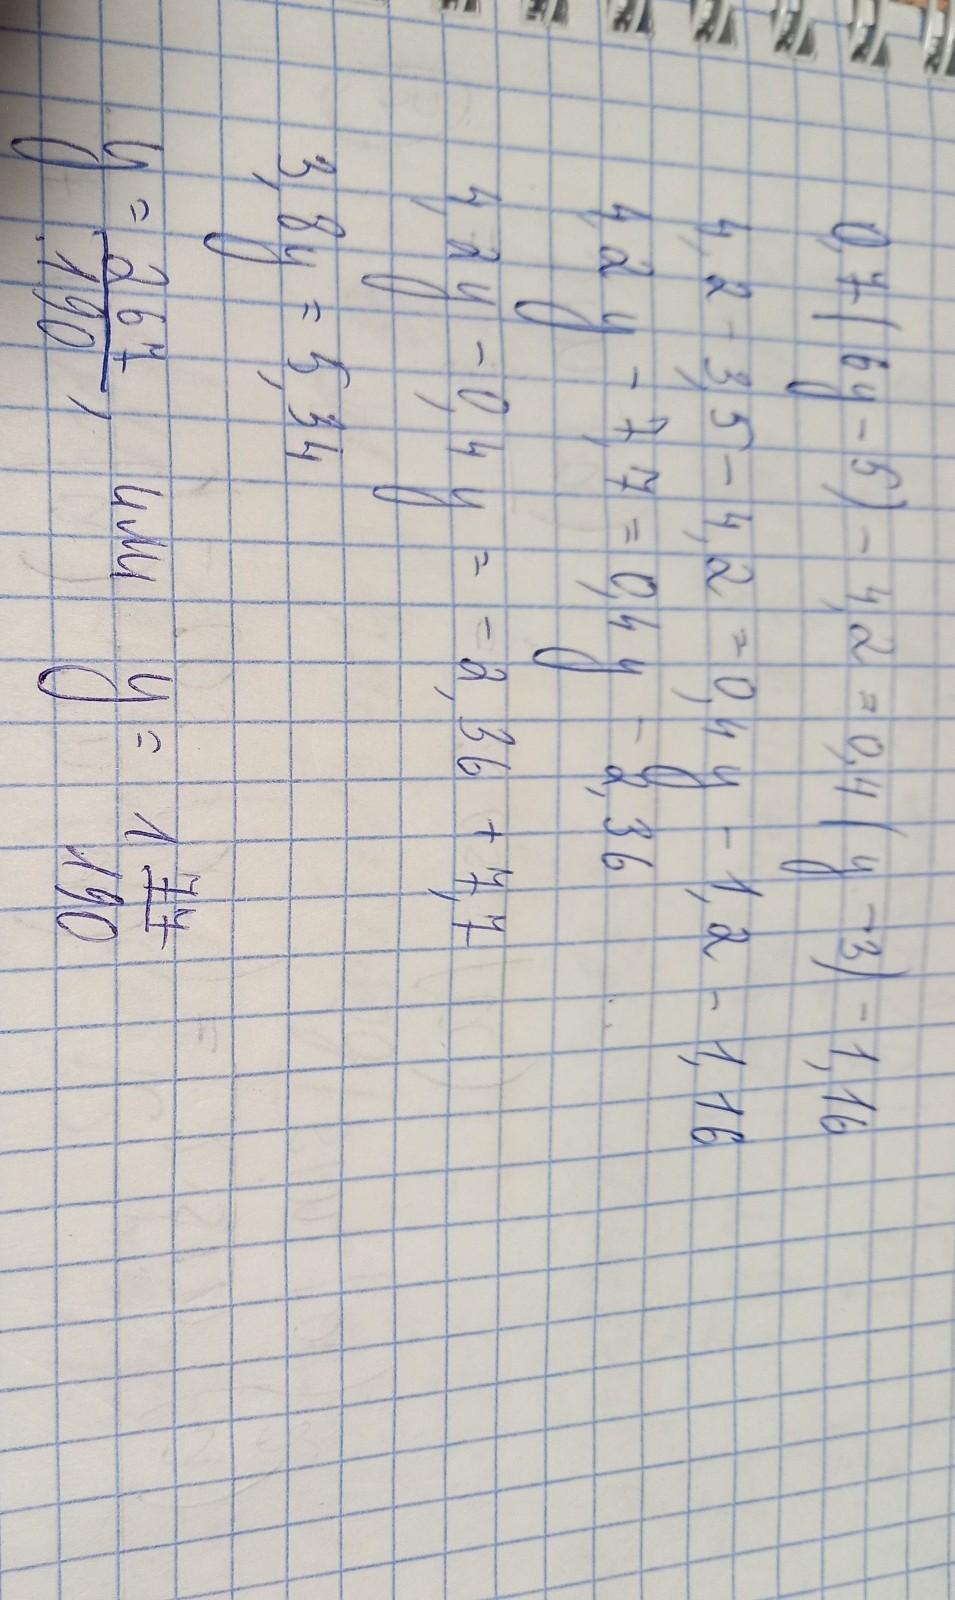 0,7(6y-5)-4,2=0,4(y-3)-1,16
4,2-3,5-4,2=0,4y-1,2-1,16
4,2y-7,7=0,4y-2,36
4,2y-0,4y=-2,36+7,7
3,8y=5,34
y=267/190, или y=1 77/190